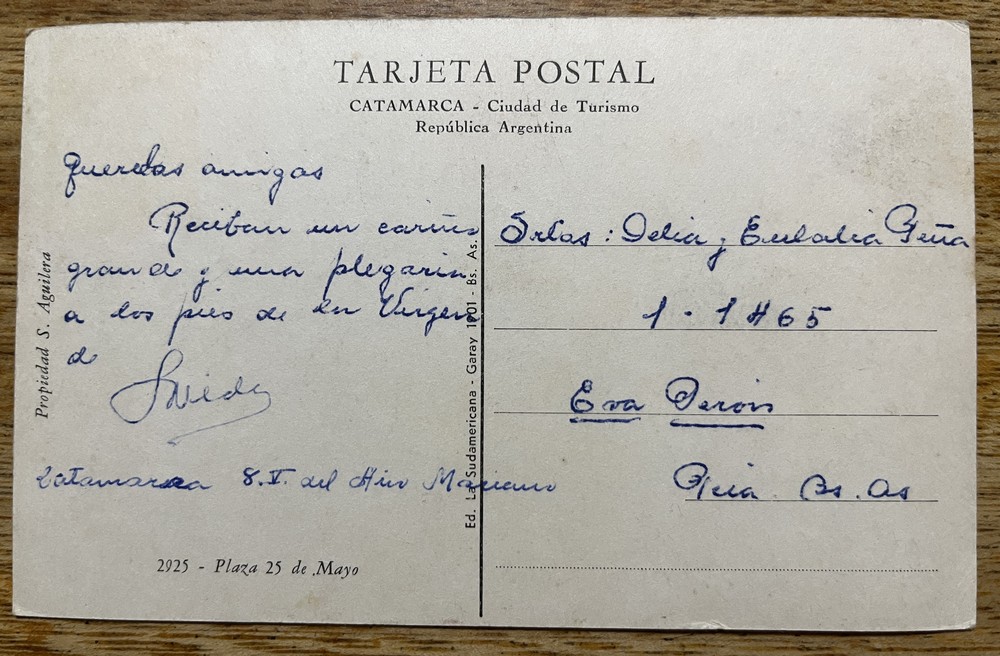 TARJETA POSTAL
CATAMARCA - Ciudad de Turismo
República Argentina
queridas amigas
Reciban un cariño
grande y una plegaria
a los pies de la Virgen
de
Catamarca 8.V. del Año Mariano
2925 - Plaza 25 de Mayo
Propiedad S. Aguilera
Ed. La Sudamericana - Garay 1001 - Bs. As.
Srtas: Delia y Eulalia Peña
1 - 1465
Eva Perón
Pcia. Bs. As